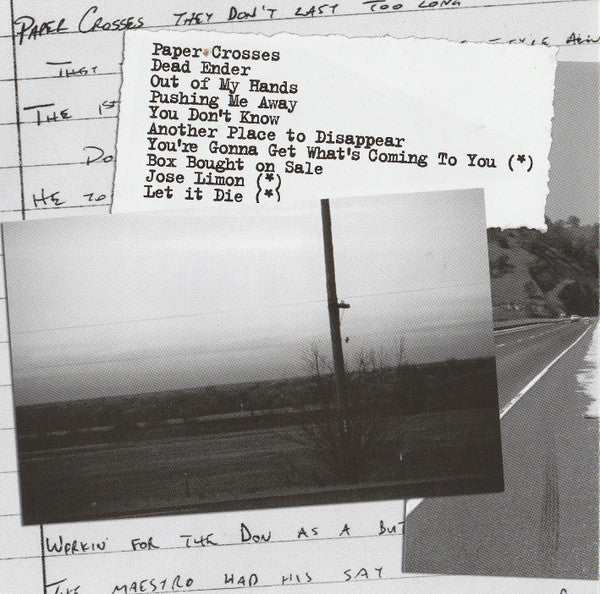 PAPER CROSSES THEY DON'T LAST TOO LONG
THE 1ST
DO
HE TO
Paper Crosses
Dead Ender
Out of My Hands
Pushing Me Away
You Don't Know
Another Place to Disappear
You're Gonna Get What's Coming To You (*)
Box Bought on Sale
Jose Limon (*)
Let it Die (*)
WORKIN' FOR THE DON AS A BUT
THE MAESTRO HAD HIS SAY